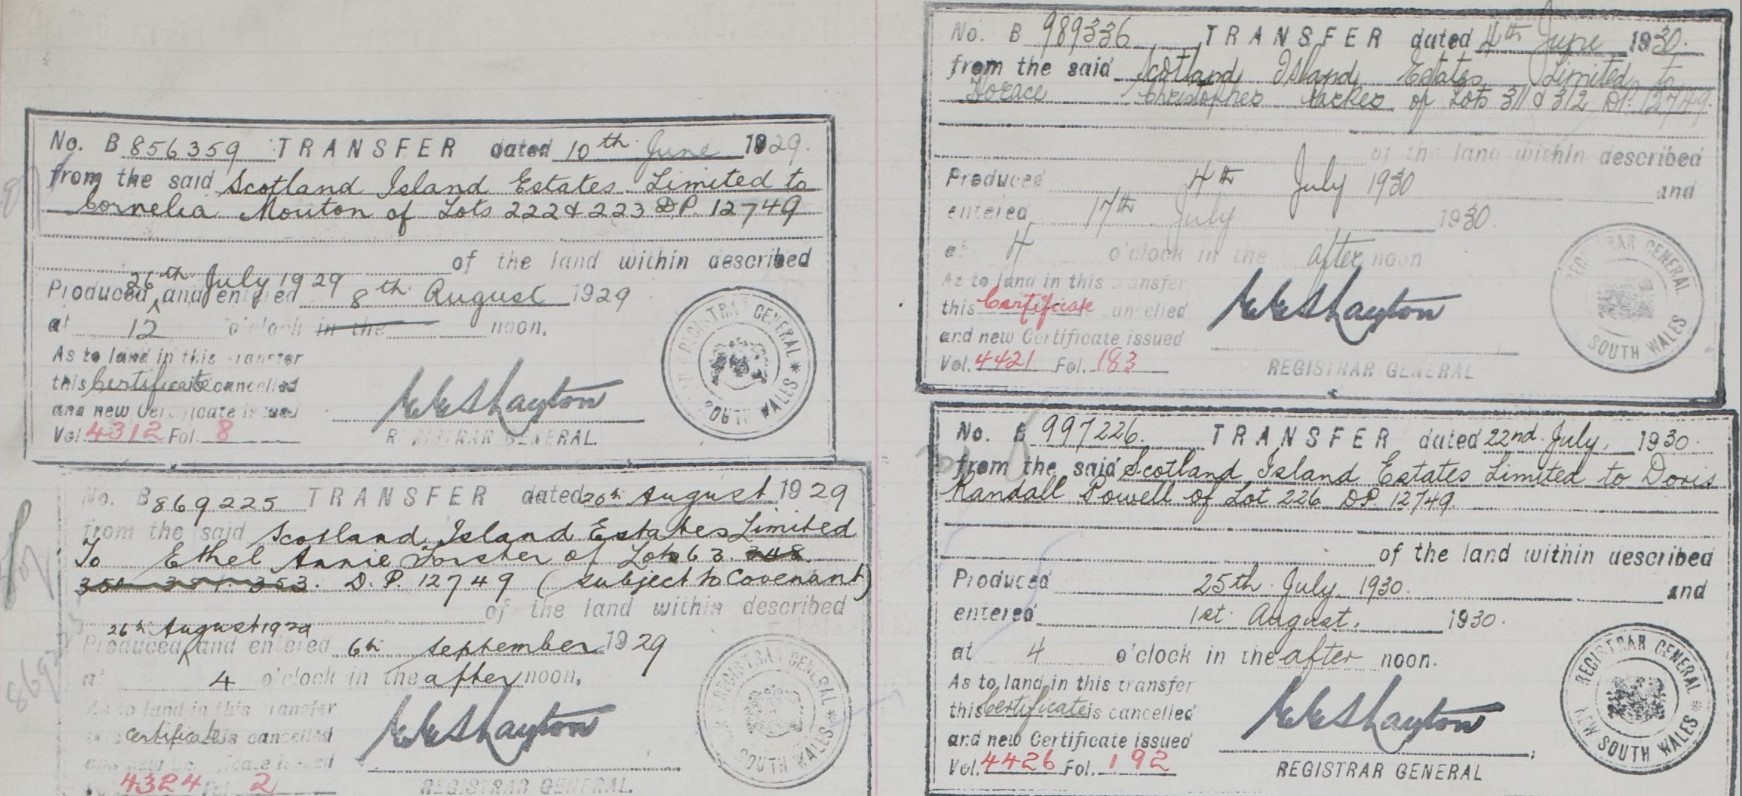 No. B 856359 TRANSFER dated 10th June 1929.
from the said Scotland Island Estates Limited to
Cornelia Mouton of Lots 222 & 223 D.P. 12749
of the land within described
26th July 1929
Produced and entered 8th August 1929
at 12 o'clock in the noon.
As to land in this transfer
this Certificate cancelled
and new Certificate issued
Vol. 4312 Fol. 8
REGISTRAR GENERAL.
REGISTRAR GENERAL * SOUTH WALES
No. B 869225 TRANSFER dated 26th August 1929
from the said Scotland Island Estates Limited
To Ethel Annie Forster of Lots 63. 348.
350 351 353. D.P. 12749 (subject to Covenant)
of the land within described
26th August 1929
Produced and entered 6th September 1929
at 4 o'clock in the after noon.
As to land in this transfer
this certificate is cancelled
and new Certificate issued
Vol. 4324 Fol. 2
REGISTRAR GENERAL.
REGISTRAR GENERAL * SOUTH WALES
No. B 989336 TRANSFER dated 4th June 1930.
from the said Scotland Island Estates Limited to
Horace Christopher Parker of Lots 311 & 312 D.P. 12749.
of the land within described
Produced 4th July 1930 and
entered 17th July 1930.
at 4 o'clock in the after noon
As to land in this transfer
this Certificate cancelled
and new Certificate issued
Vol. 4421 Fol. 183
REGISTRAR GENERAL
REGISTRAR GENERAL SOUTH WALES
No. B 997226. TRANSFER dated 22nd July, 1930.
from the said Scotland Island Estates Limited to Doris
Randall Powell of Lot 226 D.P. 12749.
of the land within described
Produced 25th July 1930. and
entered 1st August, 1930.
at 4 o'clock in the after noon.
As to land in this transfer
this Certificate is cancelled
and new Certificate issued
Vol. 4426 Fol. 192
REGISTRAR GENERAL
REGISTRAR GENERAL * NEW SOUTH WALES